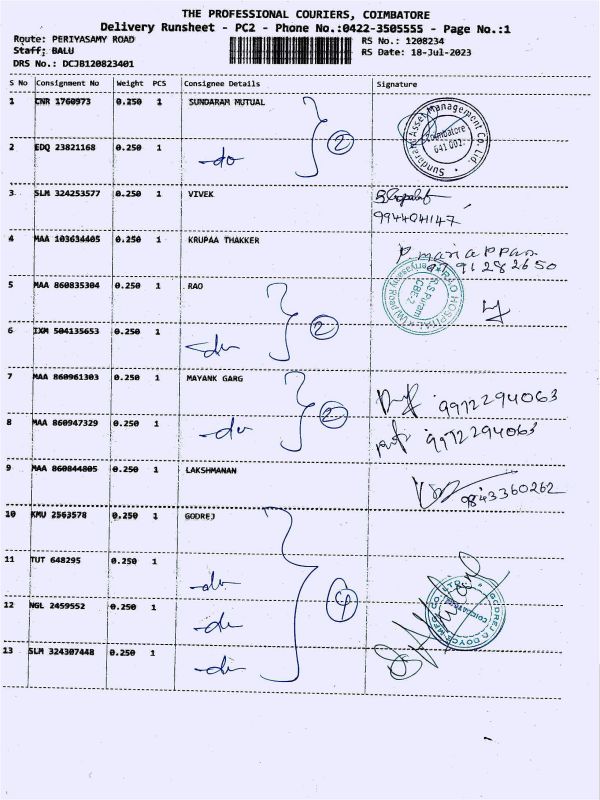 THE PROFESSIONAL COURIERS, COIMBATORE
Delivery Runsheet - PC2 - Phone No.:0422-3505555 - Page No.:1
Route: PERIYASAMY ROAD RS No.: 1208234
Staff: BALU RS Date: 18-Jul-2023
DRS No.: DCJB120823401
S No Consignment No Weight PCS Consignee Details Signature
1 CNR 1760973 0.250 1 SUNDARAM MUTUAL
2 EDQ 23821168 0.250 1 -do 2
Sundaram Asset Management Co. Ltd.
Coimbatore
641 002.
3 SLM 324253577 0.250 1 VIVEK
9944041147
4 MAA 103634405 0.250 1 KRUPAA THAKKER P mariappan
5 MAA 860835304 0.250 1 RAO
6 IXM 504135653 0.250 1 -do 2
RAO HOSPITAL
R.S. Puram
CBE-2
7 MAA 860961303 0.250 1 MAYANK GARG 9972294063
8 MAA 860947329 0.250 1 -do 2 9972294063
9 MAA 860844805 0.250 1 LAKSHMANAN 9843360262
10 KMU 2563578 0.250 1 GODREJ
11 TUT 648295 0.250 1 -do
12 NGL 2459552 0.250 1 -do 4
13 SLM 324307448 0.250 1 -do
GODREJ & BOYCE MFG. CO. LTD.
COIMBATORE